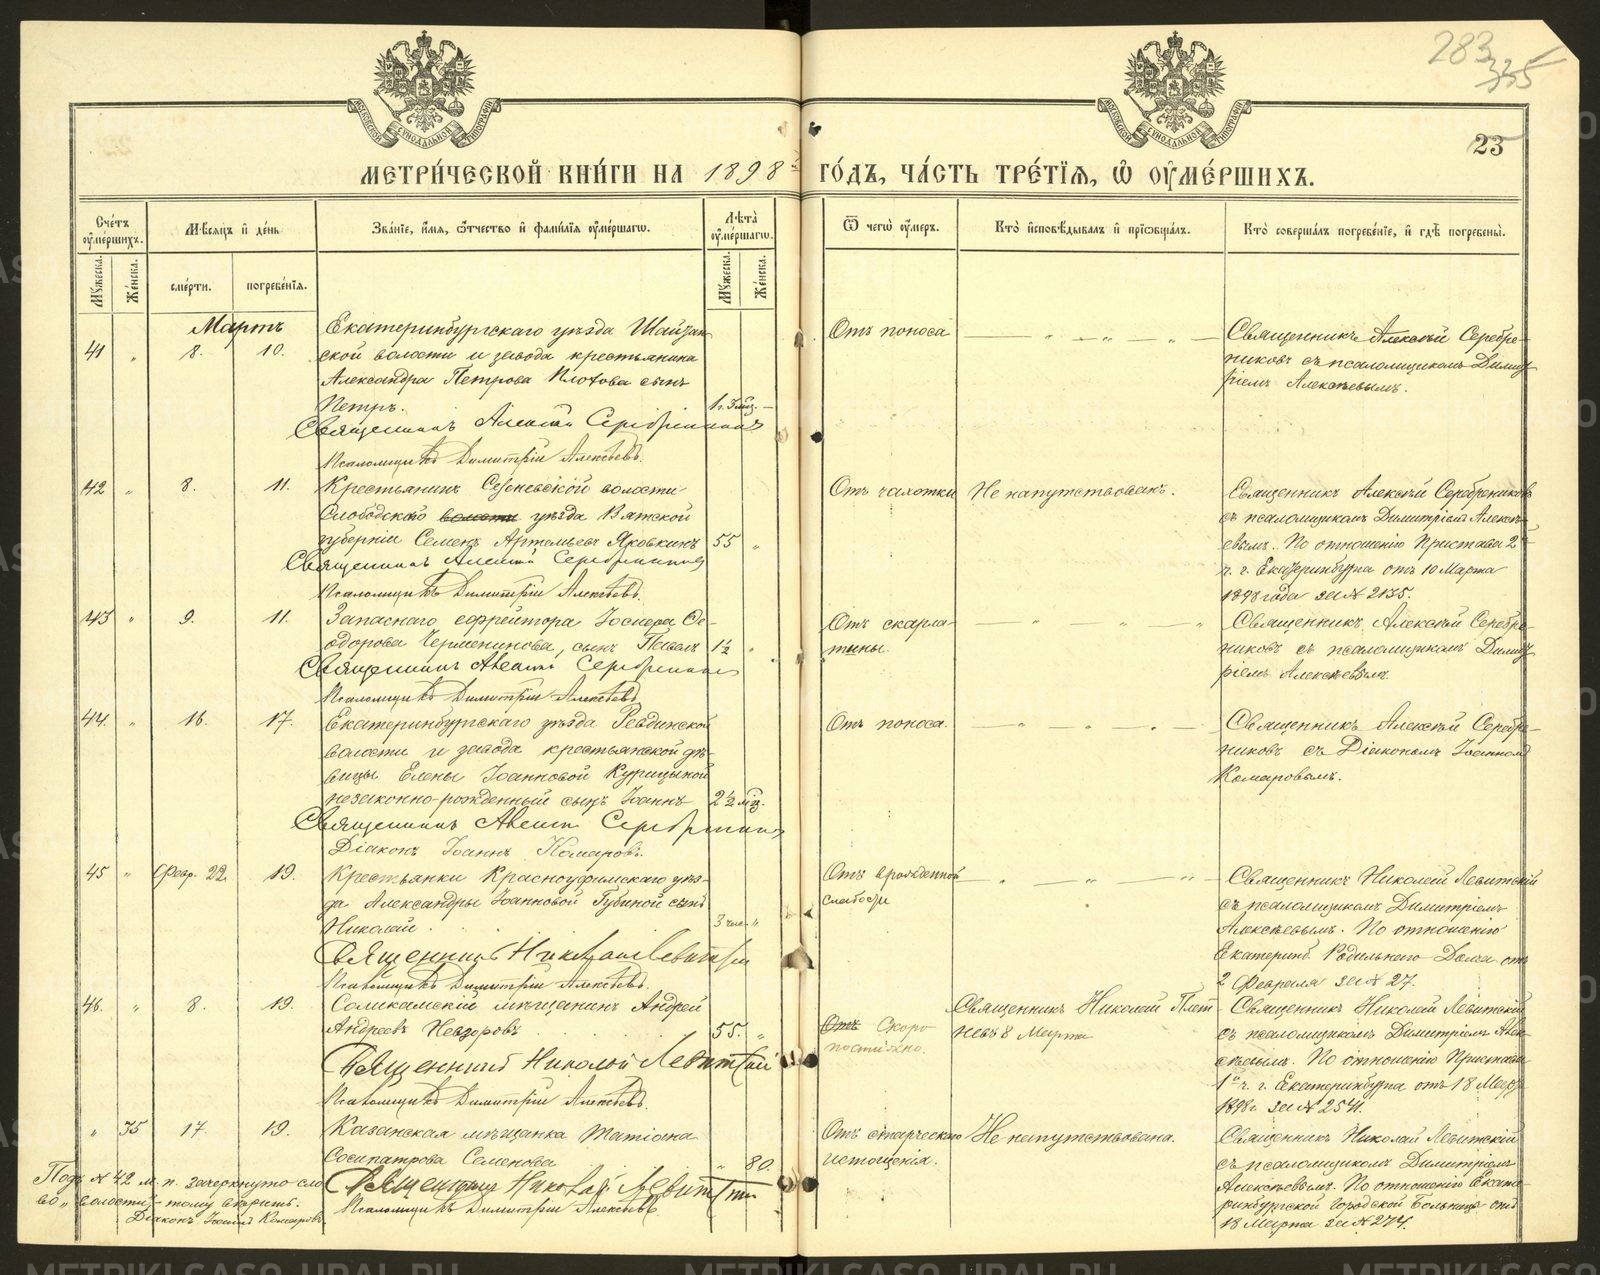 283
335
23
МЕТРИ́ЧЕСКОЙ КНИ́ГИ НА 1898 й ГО́ДЪ, ЧА́СТЬ ТРЕ́ТІѦ, Ѡ҆ ОУ҆МЕ́РШИХЪ.
Сче́тъ оу҆ме́ршихъ.
Мꙋ́жеска. Же́нска.
Мѣ́сяцъ и҆ де́нь
сме́рти. погребе́нія.
Зва́ніе, и҆́мя, ѻ҆́тчество и҆ фами́лія оу҆ме́ршагѡ.
Лѣта̀ оу҆ме́ршагѡ.
Мꙋ́жеска. Же́нска.
Ѿ чегѡ̀ оу҆́меръ.
Кто̀ и҆сповѣ́дывалъ и҆ прїѡбща́лъ.
Кто̀ соверша́лъ погребе́нїе, и҆ гдѣ̀ погребены̀.
Мартъ
41 " 8. 10.
Екатеринбургскаго уѣзда Шайтан-
ской волости и завода крестьянина
Александра Петрова Плотова сынъ
Петръ. 1 г. 3 мѣс.
Священникъ Алексій Серебренниковъ
Псаломщикъ Димитрій Алексѣевъ.
Отъ поноса
Священникъ Алексѣй Серебре-
никовъ съ псаломщикомъ Димит-
ріемъ Алексѣевымъ.
42 " 8. 11.
Крестьянинъ Сезеневской волости
Слободскаго волости уѣзда Вятской
губерніи Семенъ Артемьевъ Яровкинъ 55 "
Священникъ Алексій Серебренниковъ
Псаломщикъ Димитрій Алексѣевъ.
Отъ чахотки
Не напутствованъ.
Священникъ Алексѣй Серебренниковъ
съ псаломщикомъ Димитріемъ Алексѣ-
евымъ. По отношенію Пристава 2
ч. г. Екатеринбурга отъ 10 Марта
1898 года за № 2135.
43 " 9. 11.
Запаснаго ефрейтора Іосифа Ѳе-
одорова Черменинова, сынъ Павелъ 1½ "
Священникъ Алексій Серебренниковъ
Псаломщикъ Димитрій Алексѣевъ
Отъ скарла-
тины.
Священникъ Алексѣй Серебре-
никовъ съ псаломщикомъ Димит-
ріемъ Алексѣевымъ.
44. " 16. 17.
Екатеринбургскаго уѣзда Ревдинской
волости и завода крестьянской дѣ-
вицы Елены Іоанновой Курицыной
незаконно-рожденный сынъ Іоаннъ 2½ мѣс.
Священникъ Алексій Серебренниковъ
Діаконъ Іоаннъ Комаровъ.
Отъ поноса.
Священникъ Алексѣй Серебре-
никовъ съ Діакономъ Іоанномъ
Комаровымъ.
45 " Февр. 22. 19.
Крестьянки Красноуфимскаго уѣз-
да Александры Іоанновой Губиной сынъ
Николай 3 час. "
Священникъ Николай Левитскій
Псаломщикъ Димитрій Алексѣевъ.
Отъ врожденной
слабости
Священникъ Николай Левитскій
съ псаломщикомъ Димитріемъ
Алексѣевымъ. По отношенію
Екатеринб. Родильнаго Дома отъ
2 Февраля за № 27.
46. " 8. 19.
Соликамскій мѣщанинъ Андрей
Андреевъ Невзоровъ 55. "
Священникъ Николай Левитскій
Псаломщикъ Димитрій Алексѣевъ.
Отъ Скоро-
постижно.
Священникъ Николай Плет-
невъ 8 Марта
Священникъ Николай Левитскій
съ псаломщикомъ Димитріемъ Алек-
сѣевымъ. По отношенію Пристава
1й ч. г. Екатеринбурга отъ 18 Марта
1898 г. за № 2541.
" 35 17. 19.
Казанская мѣщанка Татіана
Сосипатрова Семенова " 80.
Священникъ Николай Левитскій
Псаломщикъ Димитрій Алексѣевъ
Отъ старческаго
истощенія.
Не напутствована.
Священникъ Николай Левитскій
съ псаломщикомъ Димитріемъ
Алексѣевымъ. По отношенію Екате-
ринбургской Городской Больницы отъ
18 Марта за № 274.
Подъ № 42 м. п. зачеркнуто сло-
во „волости“ – тому вѣрить.
Діаконъ Іоаннъ Комаровъ
METRIKI.GASO-URAL.RU